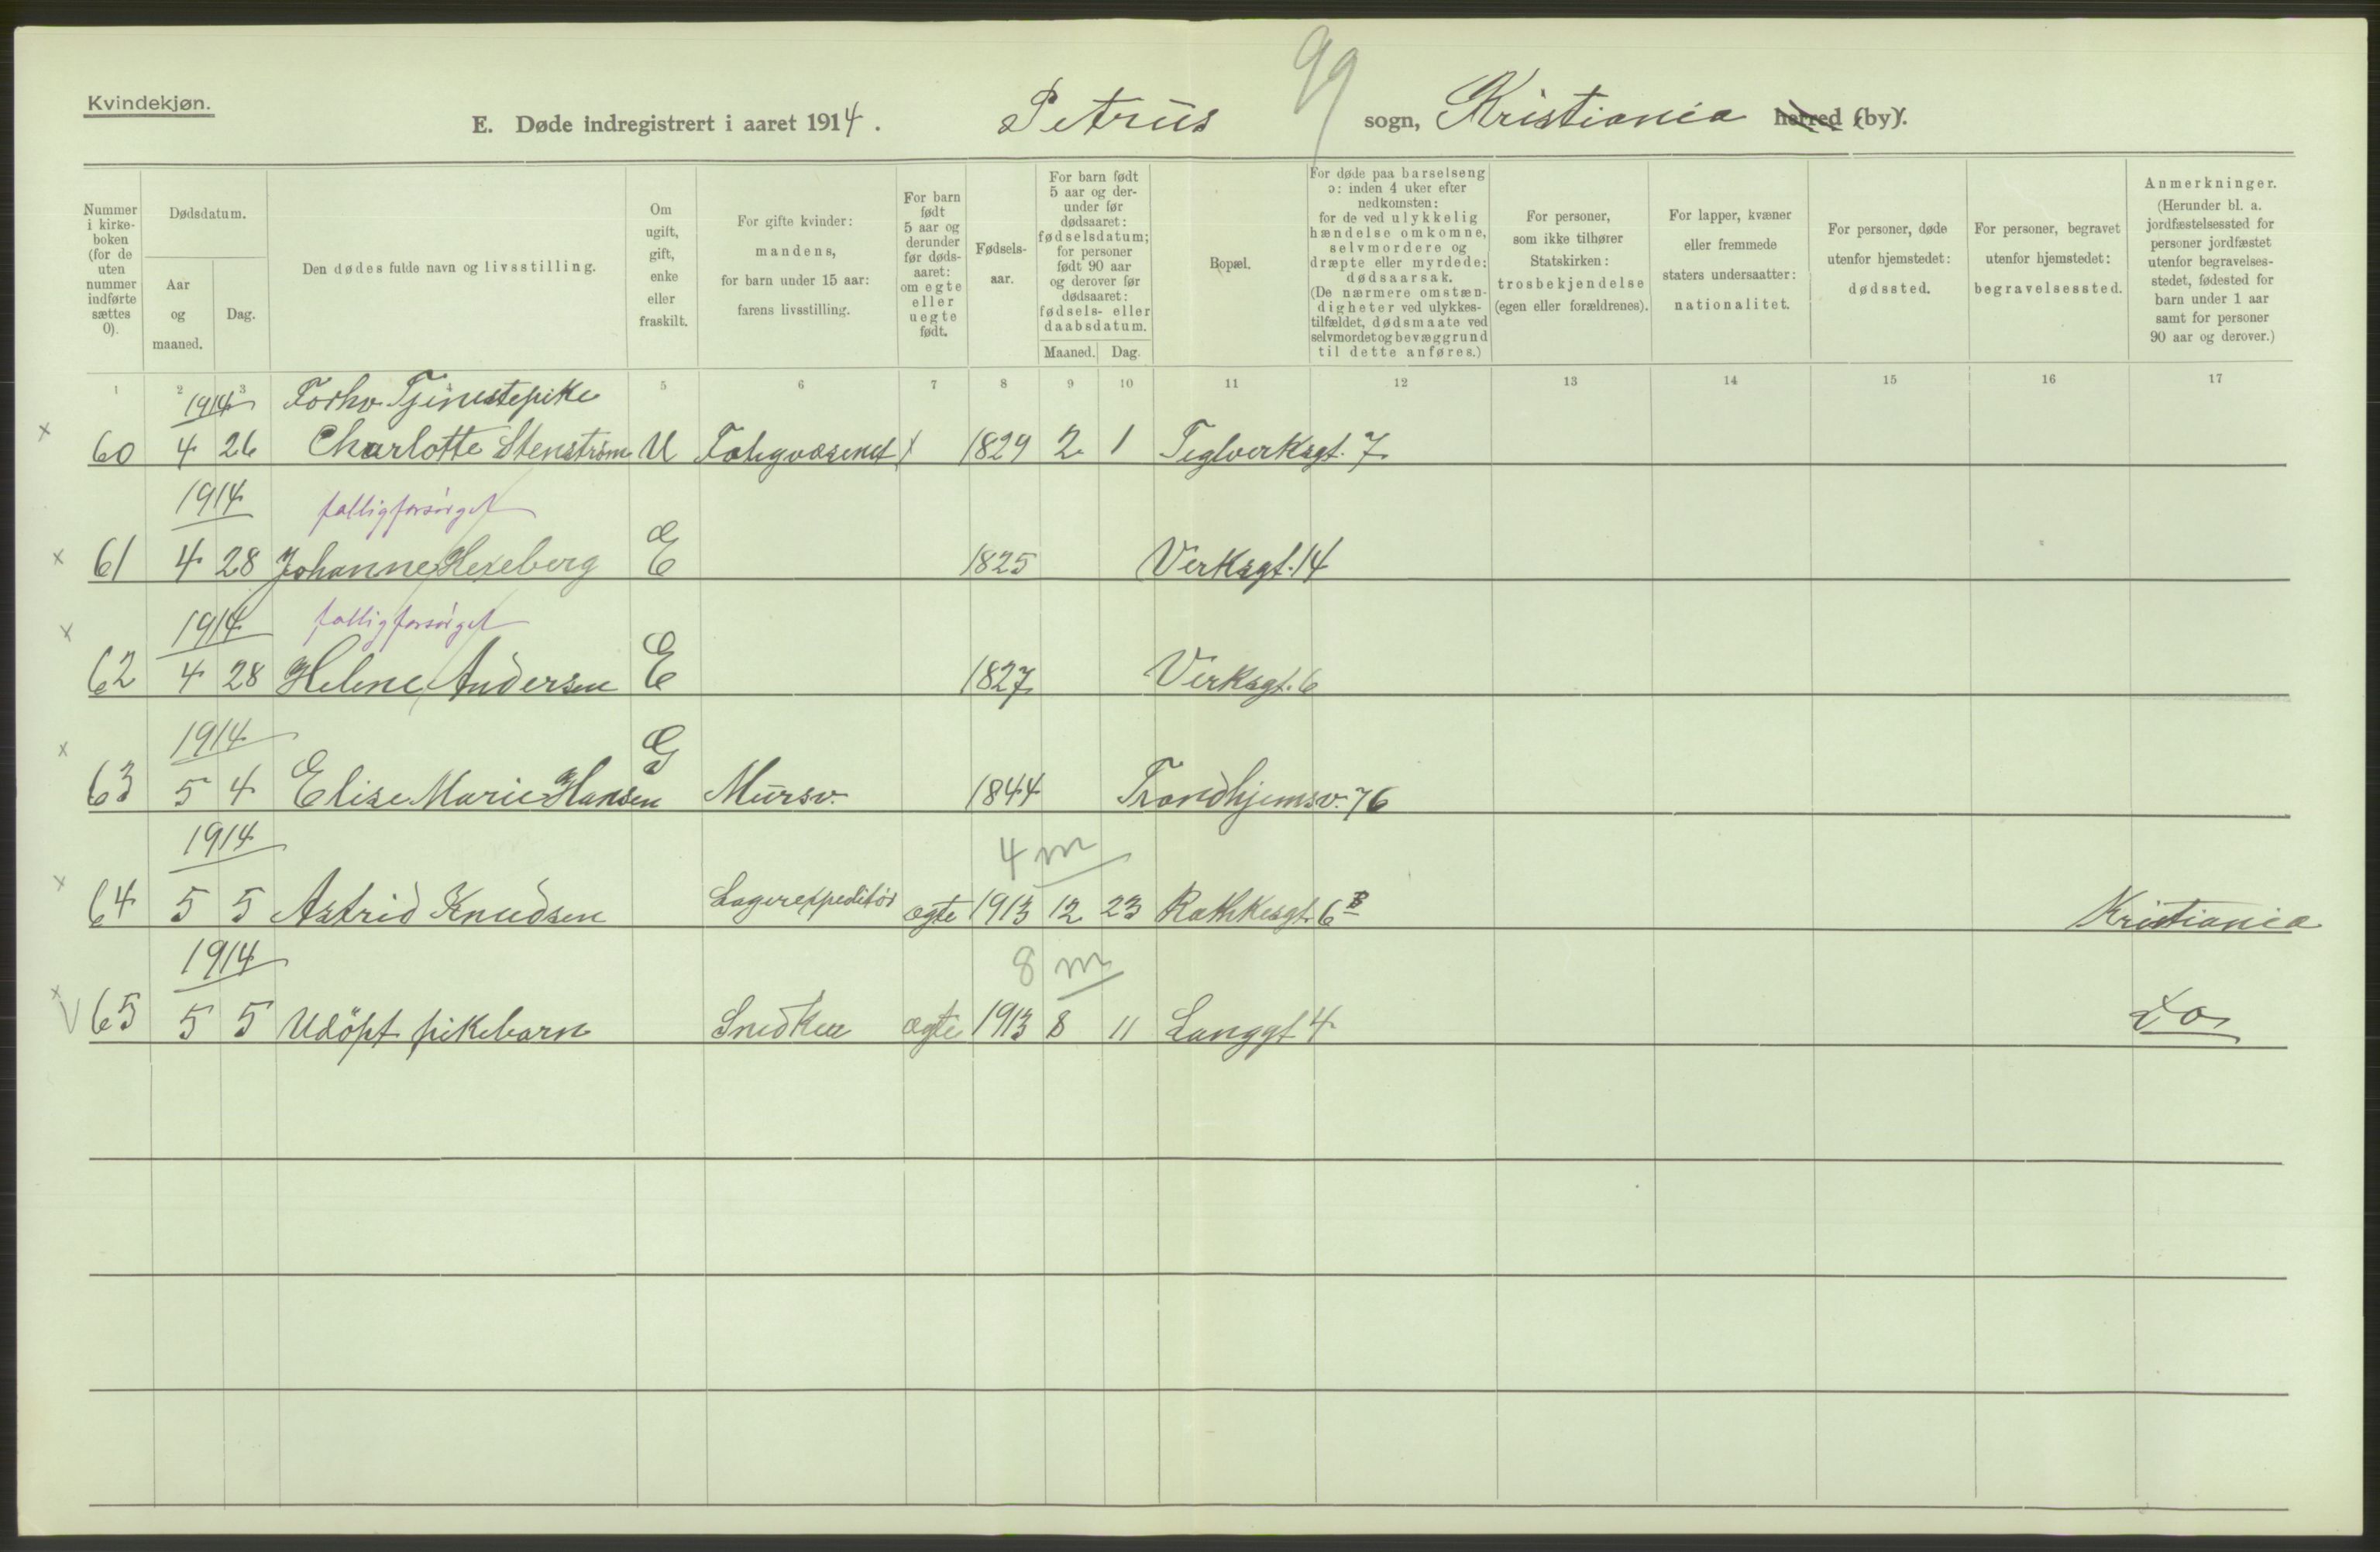 99
Kvindekjøn.
E. Døde indregistrert i aaret 1914. Petrus sogn, Kristiania herred (by).
Nummer i kirke-boken (for de uten nummer indførte sættes 0).
Dødsdatum.
Aar og maaned.
Dag.
Den dødes fulde navn og livsstilling.
Om ugift, gift, enke eller fraskilt.
For gifte kvinder: mandens, for barn under 15 aar: farens livsstilling.
For barn født 5 aar og derunder før døds-aaret: om egte eller uegte født.
Fødsels-aar.
For barn født 5 aar og der-under før dødsaaret: fødselsdatum; for personer født 90 aar og derover før dødsaaret: fødsels- eller daabsdatum.
Maaned. Dag.
Bopæl.
For døde paa barselseng ɔ: inden 4 uker efter nedkomsten: for de ved ulykkelig hændelse omkomne, selvmordere og dræpte eller myrdede: dødsaarsak. (De nærmere omstæn-digheter ved ulykkes-tilfældet, dødsmaate ved selvmordet og bevæggrund til dette anføres.)
For personer, som ikke tilhører Statskirken: trosbekjendelse (egen eller forældrenes).
For lapper, kvæner eller fremmede staters undersaatter: nationalitet.
For personer, døde utenfor hjemstedet: dødssted.
For personer, begravet utenfor hjemstedet: begravelsessted.
Anmerkninger. (Herunder bl. a. jordfæstelsessted for personer jordfæstet utenfor begravelses-stedet, fødested for barn under 1 aar samt for personer 90 aar og derover.)
1 2 3 4 5 6 7 8 9 10 11 12 13 14 15 16 17
1914 Forhv. Tjenestepike
x 60 4 26 Charlotte Stenstrøm U 1829 2 1 Teglverksgt. 7
1914 fattigforsörget
x 61 4 28 Johanne Hexeberg E 1825 Verksgt. 14
1914 fattigforsörget
x 62 4 28 Helene Andersen E 1827 Verksgt. 6
1914
x 63 5 4 Elise Marie Hansen G Mursv. 1844 Trondhjemsv. 76
1914 4 m
x 64 5 5 Astrid Knudsen Lagerexpeditör ægte 1913 12 23 Rathkesgt. 6 B Kristiania
1914 8 m
x V 65 5 5 Udöpt pikebarn Snedker ægte 1913 8 11 Langgt 4 Do